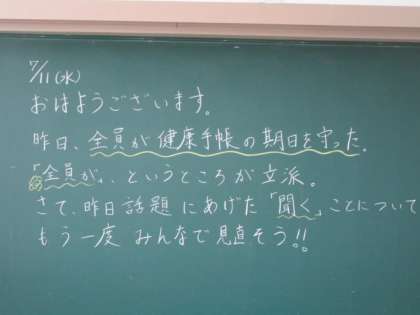 7/11(水)
おはようございます。
昨日、全員が健康手帳の期日を守った。
「全員が」、というところが立派。
さて、昨日話題にあげた「聞く」ことについて
もう一度みんなで見直そう!!